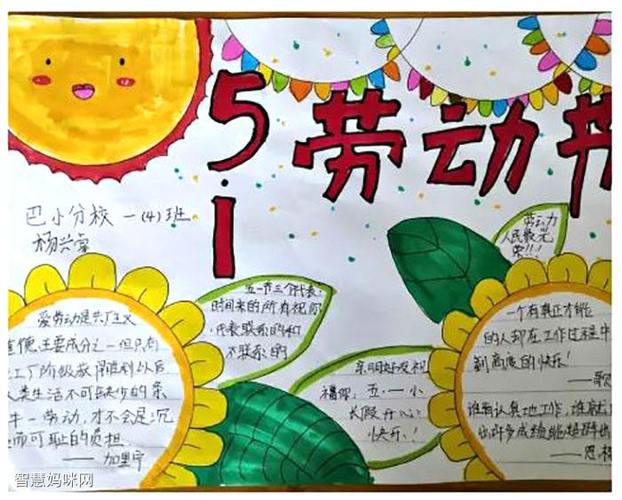 5.1 劳动节
巴小分校 一(4)班
杨兴
劳动力
人民最光
荣!!!
五一节三个代表:
时间来的所有祝你
代表联系的和
不联系的
爱劳动是共产主义
道德主要成分之一但只有
工厂阶级获
人类生活不可缺少的条
件一劳动,才不会是沉
而可耻的负担.
—— 加里宁
亲朋好友祝
福你:五.一小
长假开心
快乐!
一个有真正才能
的人却在工作过程中
到高度的快乐!
——歌
谁肯认真地工作,谁就
出许多成绩
——恩格
智慧妈咪网